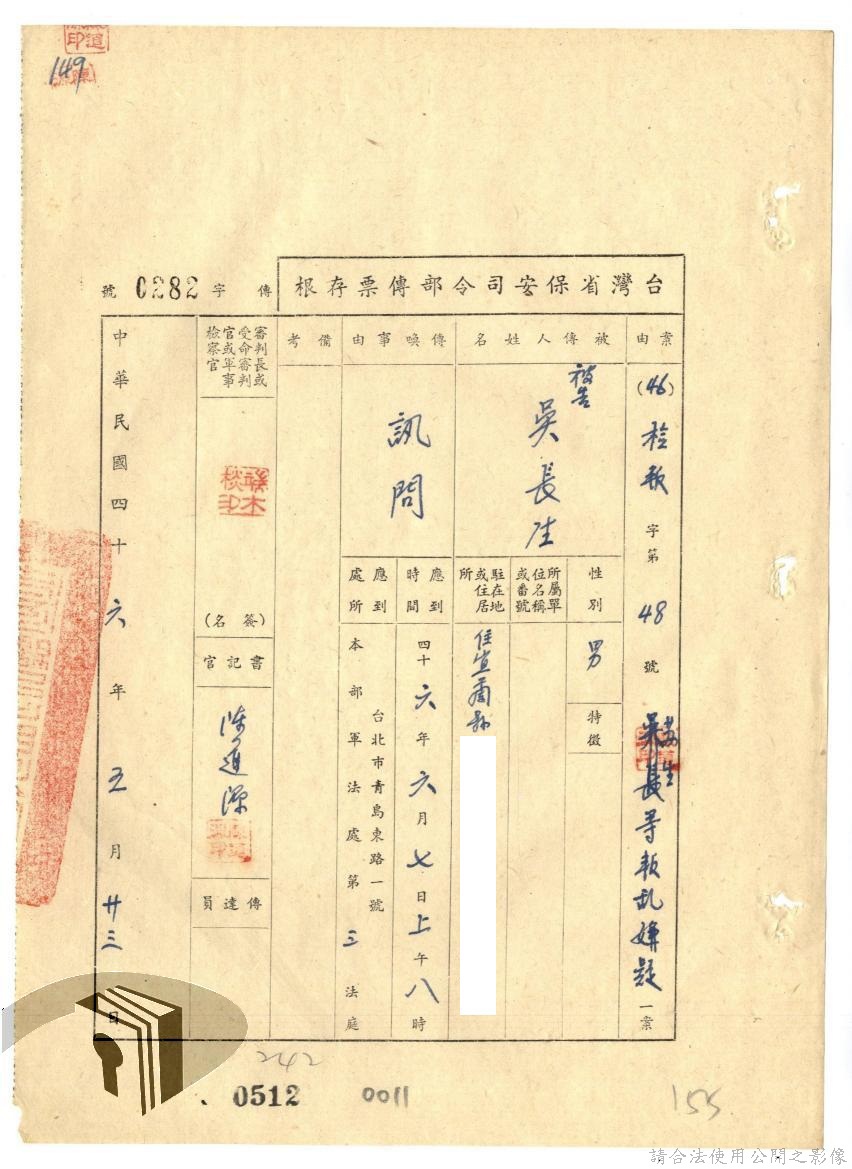 149
台灣省保安司令部傳票存根
傳字 0282 號
案由
(46) 檢報 字第 48 號
等叛乱嫌疑 一案
被傳人姓名
被告
吳長生
性別
男
特徵
所屬單位名稱或番號
駐在地或住居所
住宜蘭縣
傳喚事由
訊問
應到時間
四十六年六月七日上午八時
應到處所
台北市青島東路一號
本部軍法處第三法庭
備考
審判長或受命審判官或軍事檢察官
(簽名)
書記官
陳進源
傳達員
中華民國四十六年五月廿三日
242
0512
0011
155
請合法使用公開之影像